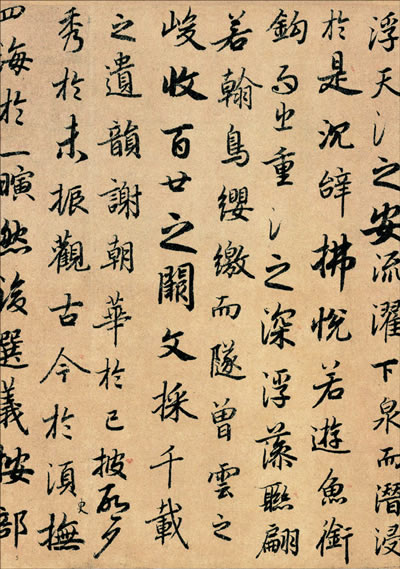 浮天氵之安流濯下泉而潛浸
於是沉辝拂悅若遊魚銜
鈎而出重氵之深浮藻聯翩
若翰鳥纓繳而隧曾雲之
峻收百廿之闕文採千載
之遺韻謝朝華於已披啓夕
秀於未振觀古今於須臾撫
四海於一曠然後選義按部